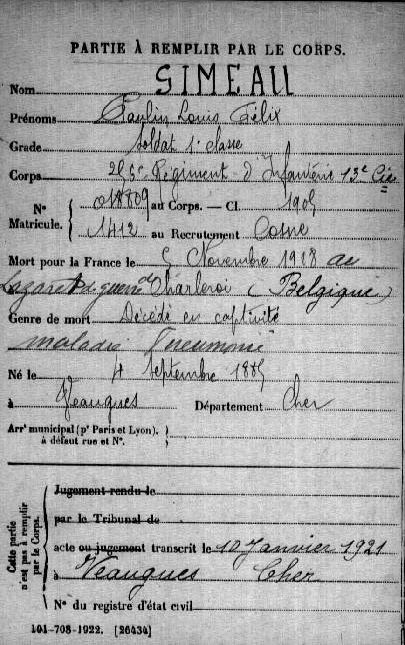 PARTIE À REMPLIR PAR LE CORPS.
Nom SIMEAU
Prénoms Paulin Louis Félix
Grade Soldat 1e classe
Corps Régiment d'Infanterie 13e Cie
N° 018809 au Corps. — Cl. 1905
Matricule. 1412 au Recrutement Cosne
Mort pour la France le 5 Novembre 1918 au
Lazaret de guerre Charleroi (Belgique)
Genre de mort Décédé en captivité
maladie Pneumonie
Né le 4 Septembre 1885
à Veaugues Département Cher
Arrt municipal (pr Paris et Lyon),
à défaut rue et N°.
Cette partie n'est pas à remplir par le Corps.
Jugement rendu le
par le Tribunal de
acte ou jugement transcrit le 10 Janvier 1921
à Veaugues Cher
N° du registre d'état civil
101-708-1922. [26434]